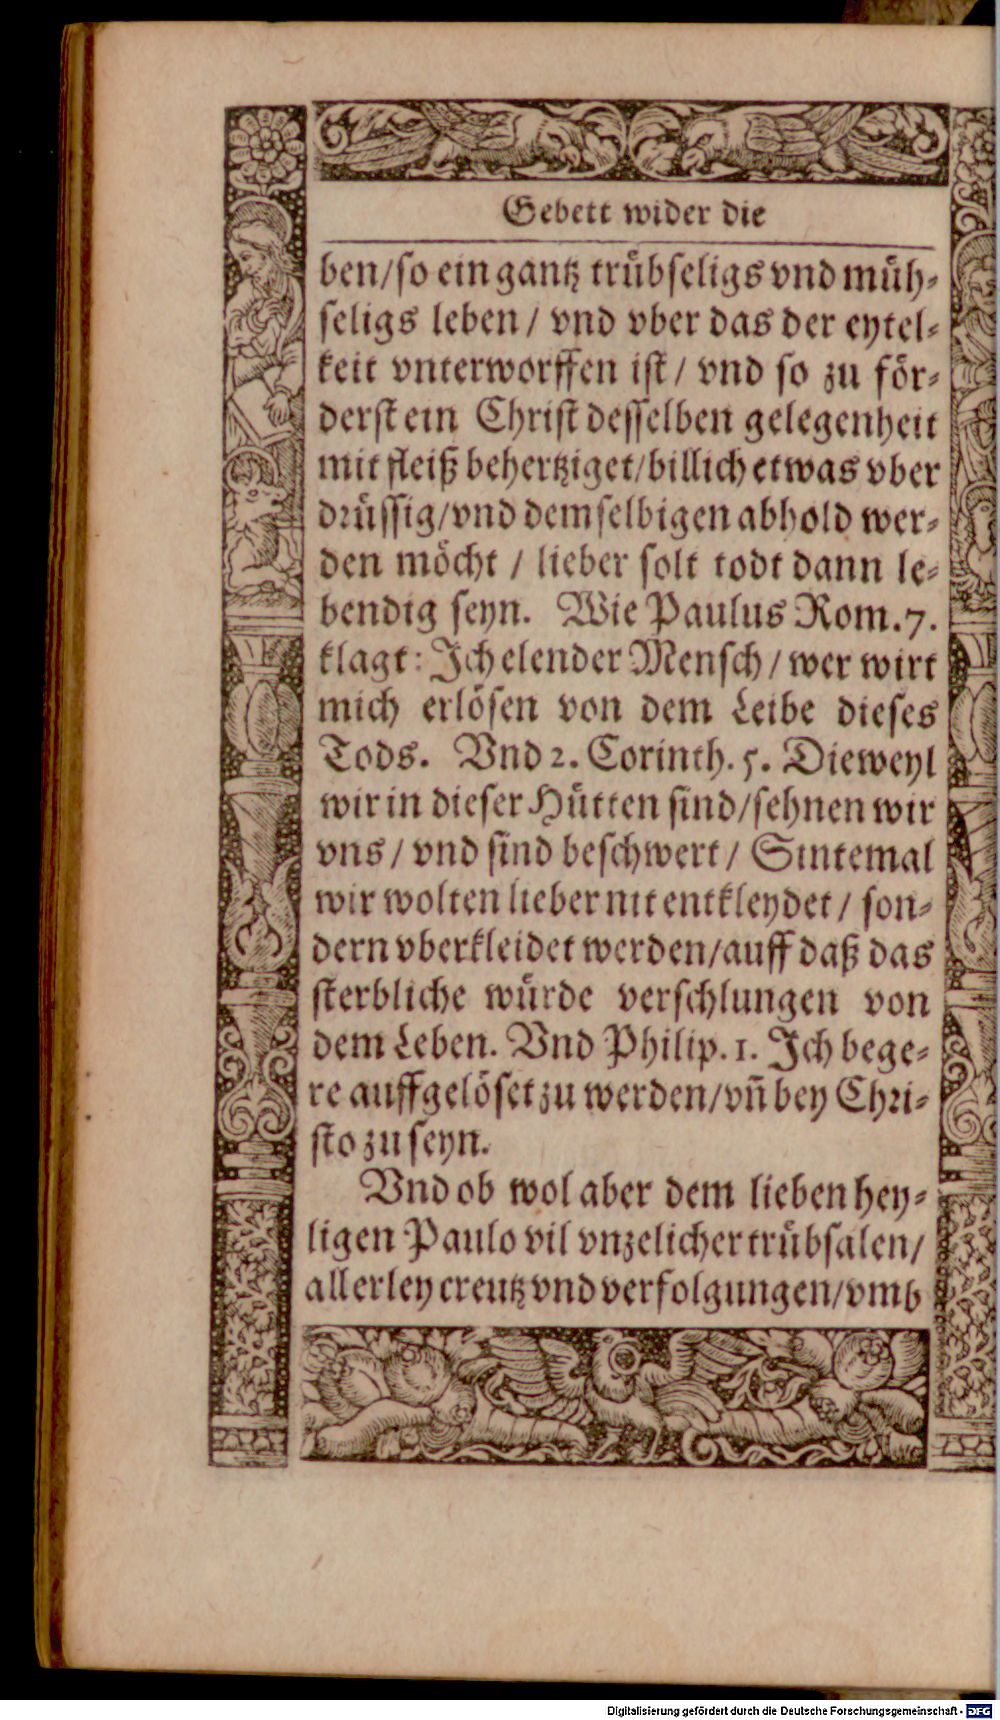 Gebett wider die
ben/so ein gantz trübseligs vnd müh⸗
seligs leben / vnd vber das der eytel⸗
keit vnterworffen ist / vnd so zu för⸗
derst ein Christ desselben gelegenheit
mit fleiß behertziget/billich etwas vber
drüssig/vnd demselbigen abhold wer⸗
den möcht / lieber solt todt dann le⸗
bendig seyn. Wie Paulus Rom. 7.
klagt: Ich elender Mensch / wer wirt
mich erlösen von dem Leibe dieses
Tods. Vnd 2. Corinth. 5. Dieweyl
wir in dieser Hütten sind/sehnen wir
vns / vnd sind beschwert / Sintemal
wir wolten lieber nit entkleydet / son⸗
dern vberkleidet werden/auff daß das
sterbliche würde verschlungen von
dem Leben. Vnd Philip. 1. Ich bege⸗
re auffgelöset zu werden/vn̄ bey Chri⸗
sto zu seyn.
Vnd ob wol aber dem lieben hey⸗
ligen Paulo vil vnzelicher trübsalen/
allerley creutz vnd verfolgungen/vmb
Digitalisierung gefördert durch die Deutsche Forschungsgemeinschaft - DFG